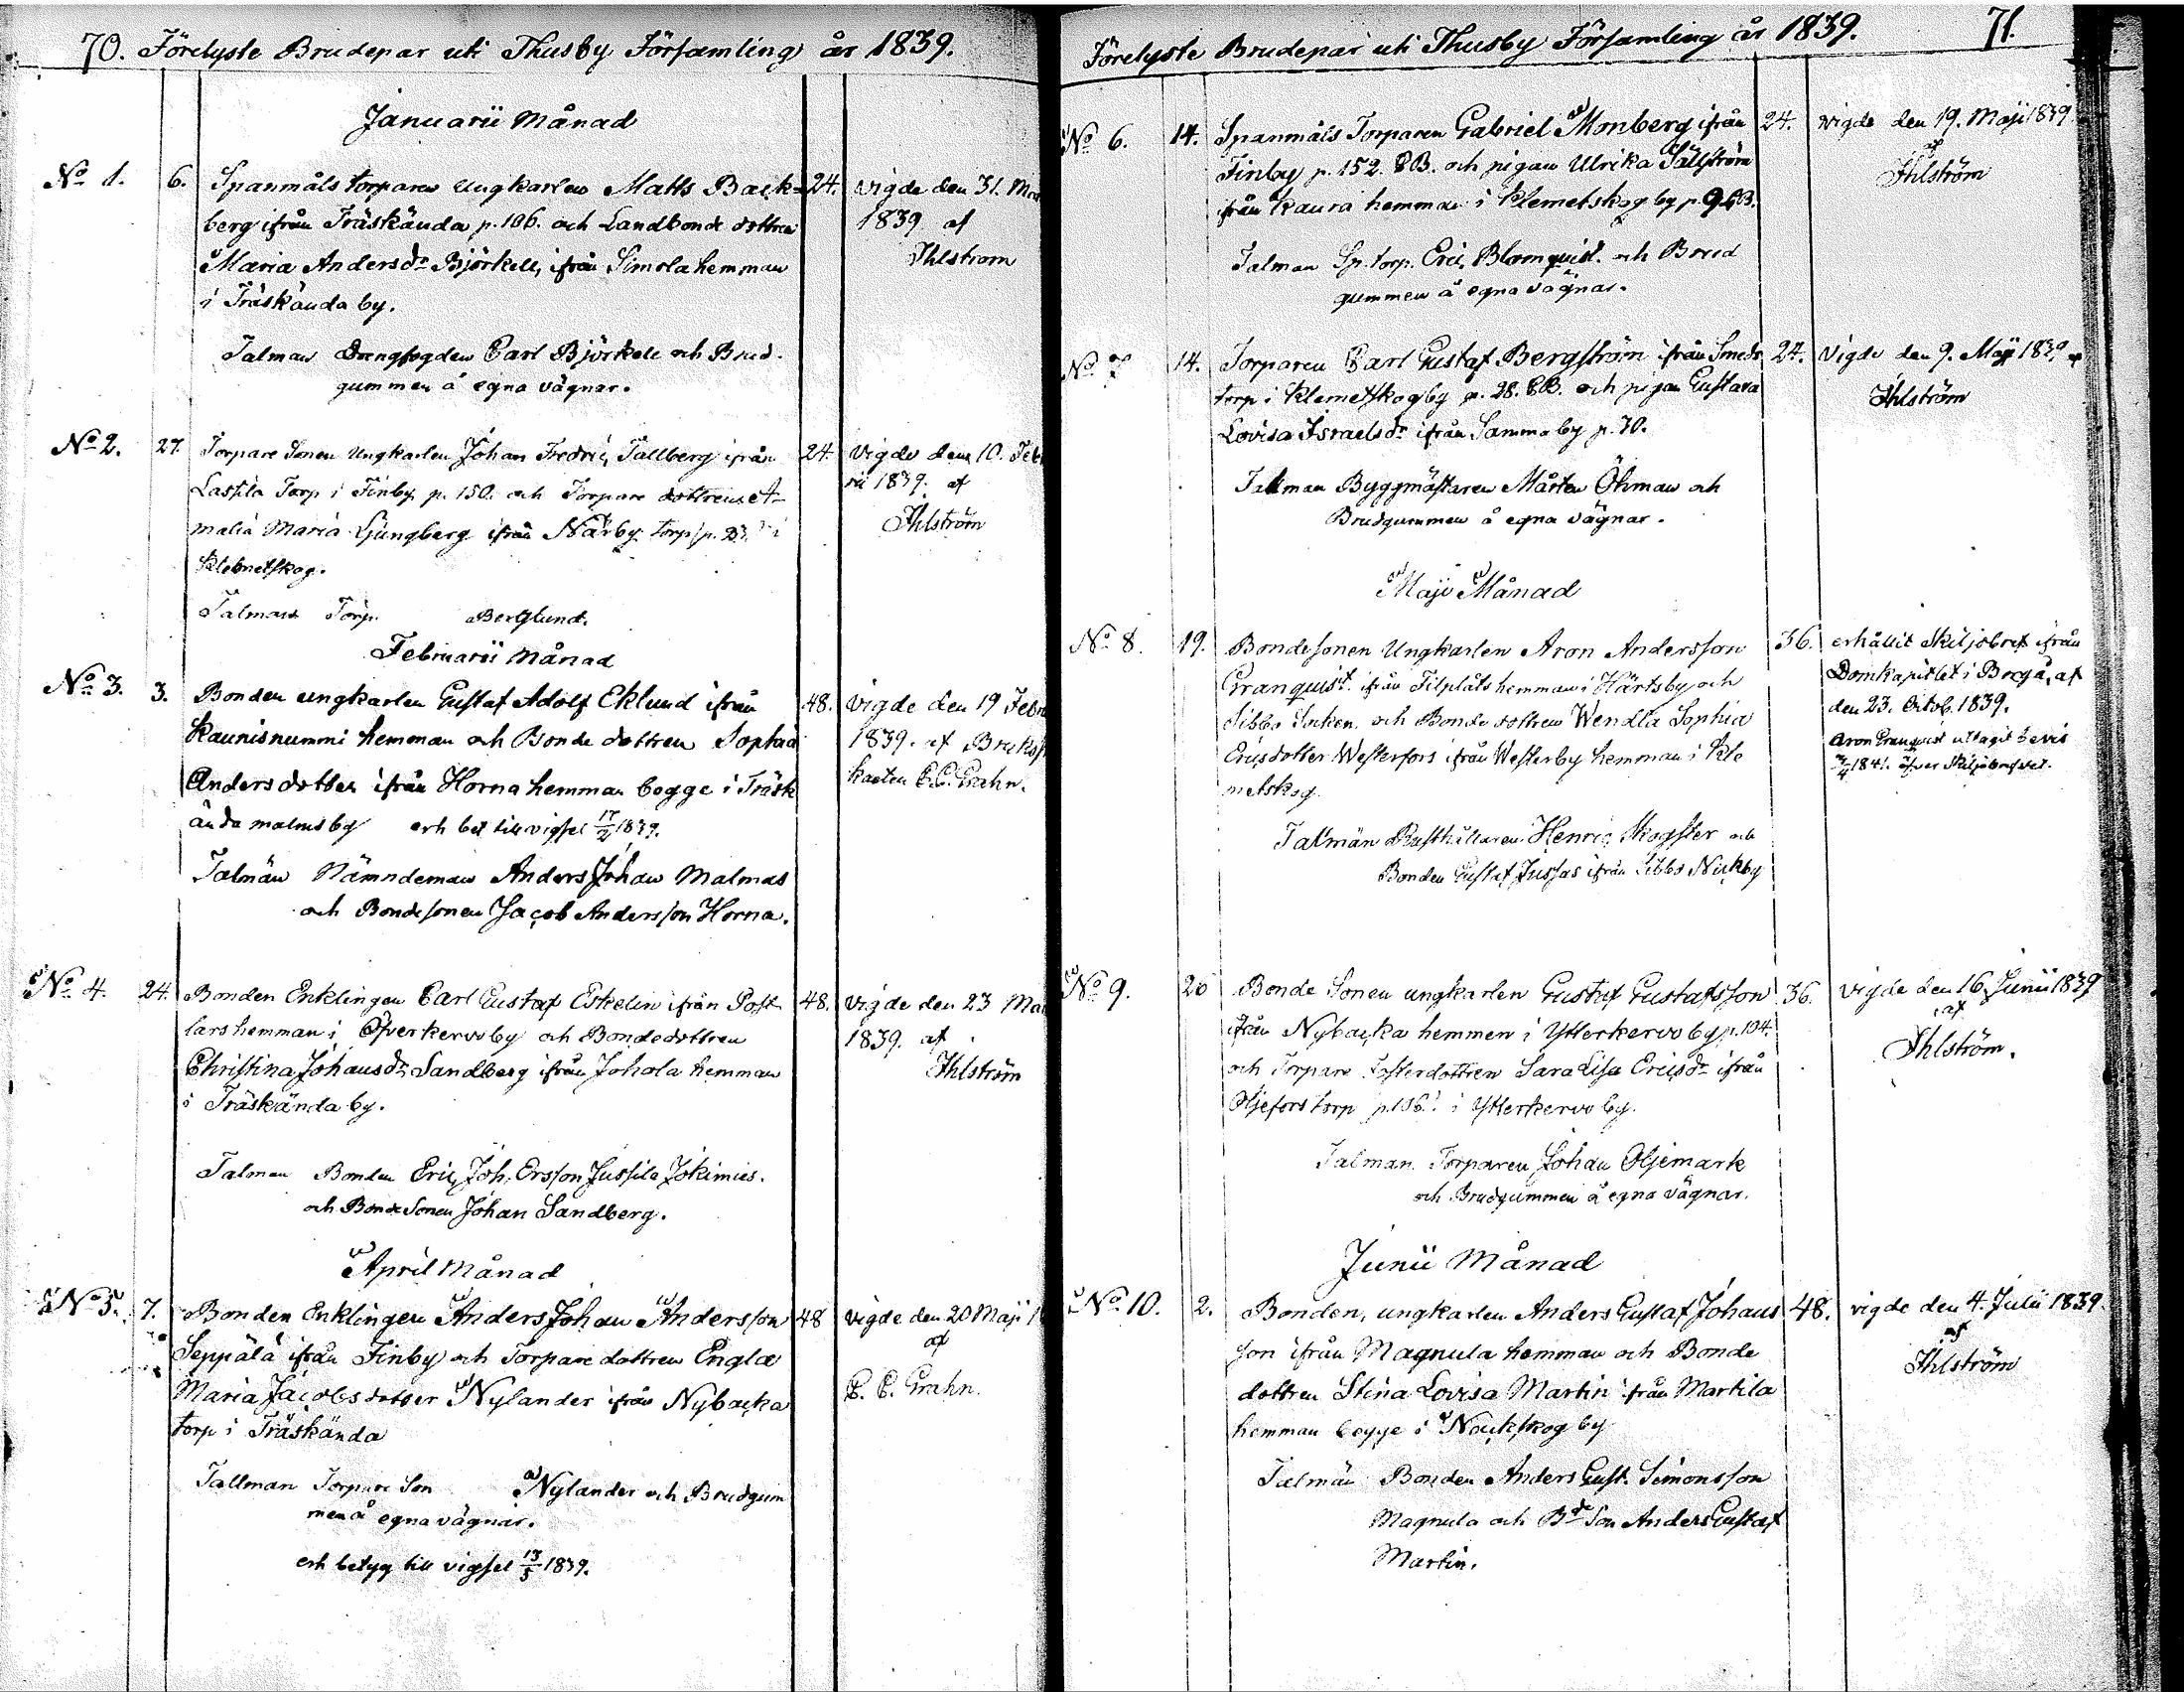 70. Förelyste Brudepar uti Thusby Församling år 1839.
Januarii Månad
No 1. 6. Spanmåls torparen ungkarlen Matts Back- 24. vigde den 31.
berg ifrån Träskända p. 106. och Landbonde dottren 1839 af
Maria Andersdr Björkell, ifrån Simola hemman Ihlström
i Träskända by.
Talman Drengfogden Carl Björkell och Brud-
gummen å egna vägnar.
No 2. 27. Torpare Sonen Ungkarlen Johan Fredric Tallberg ifrån 24. vigde den 10. Feb
Lassila Torp i Finby p. 150. och Torpare dottren A- rii 1839. af
malia Maria Ljungberg ifrån Närby torp p. i Ihlström
Klemetskog.
Talman Torp. Berglund.
Februarii Månad
No 3. 3. Bonden ungkarlen Gustaf Adolf Eklund ifrån 48. vigde den 19 Febr
Kaunisnummi hemman och Bonde dottren Sophia 1839. af Bruksp
Andersdotter ifrån Horna hemman begge i Träsk
ända malmsby erh bet till vigsel 17/2 1839. C.C. Grahn.
Talmän Nämndeman Anders Johan Malmas
och Bondesonen Jacob Andersson Horna.
No 4. 24. Bonden Enklingen Carl Gustaf Eskelin ifrån Post- 48. vigde den 23 Ma
lars hemman i Öfverkervo by och Bondedottren 1839. af
Christina Johansdr Sandberg ifrån Johola hemman Ihlström
i Träskända by.
Talman Bonden Eric Joh. Ersson Jussila Jokimies.
och Bonde Sonen Johan Sandberg.
April Månad
No 5. 7. Bonden Enklingen Anders Johan Andersson 48 vigde den 20 Maji 1
Seppälä ifrån Finby och Torpare dottren Engla af
Maria Jacobsdotter Nylander ifrån Nybacka C. C. Grahn.
torp i Träskända
Tallman Torpare Son Nylander och Brudgum
men å egna vägnar.
erh betyg till vigsel 13/5 1839.
Förelyste Brudepar uti Thusby Församling år 1839. 71.
No 6. 14. Spanmåls Torparen Gabriel Monberg ifrån 24. vigde den 19. Maji 1839
Finby p. 152. CB. och pigan Ulrika Sällström af
ifrån Kaura hemman i Klemetskog by p. 9 CB. Ihlström
Talman Sp. torp. Eric Blomqvist. och Brud
gummen å egna vägnar.
No 7 14. Torparen Carl Gustaf Bergström ifrån Smeds 24. Vigde den 9. Maji 1839 af
torp i Klemetskog by p. 28. CB. och pigan Gustava Ihlström
Lovisa Israelsdr ifrån Samma by p. 70.
Talman Byggmästaren Mårten Öhman och
Brudgummen å egna vägnar.
Maji Månad
No 8. 19. Bondesonen Ungkarlen Aron Andersson 36. erhållit Skiljobref ifrån
Granquist. ifrån Tilplåts hemman i Härtsby och Domkapitlet i Borgå, af
Sibbo Socken. och Bonde dottren Wendla Sophia den 23. Octob. 1839.
Ericsdotter Westerfors ifrån Westerby hemman i Kle Aron Granquist uttagit bevis
metskog. 1841. öfver skiljobrefvet.
Talmän Rusthållaren Henric Skogster och
Bonden Gustaf Jussas ifrån Sibbo Nickby
No 9. 20 Bonde Sonen ungkarlen Gustaf Gustafsson 36. vigde den 16 Junii 1839
ifrån Nybacka hemmen i Ytterkervo by p. 104. af
och Torpare Fosterdottren Sara Lisa Ericsdr ifrån Ihlström.
Oljefors torp i Ytterkervo by.
Talman Torparen Johan Oljemark
och Brudgummen å egna vägnar.
Junii Månad
No 10. 2. Bonden, ungkarlen Anders Gustaf Johans 48. vigde den 4. Julii 1839.
son ifrån Magnula hemman och Bonde af
dottren Stina Lovisa Martin ifrån Martila Ihlström
hemman begge i Nackskog by
Talmän Bonden Anders Gust. Simonsson
Magnula och Bde Son Anders Gustaf
Martin.